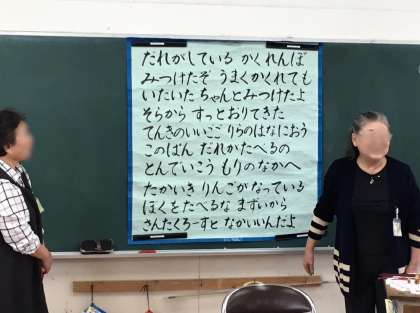 だれがしている かくれんぼ
みつけたぞ うまくかくれても
いたいた ちゃんとみつけたよ
そらから すっとおりてきた
てんきのいいここ りらのはなにおう
このばん だれかたべるの
とんでいこう もりのなかへ
たかいき りんごがなっている
ぼくをたべるな まずいから
さんたくろーすと なかいいんだよ